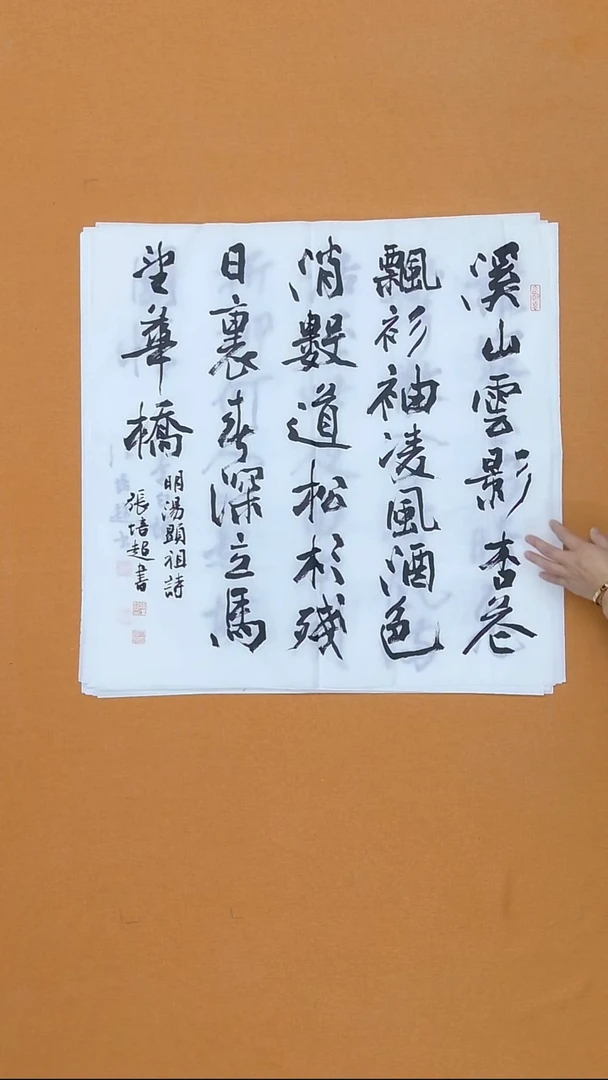 溪山雲影杏花
飄衫袖凌風酒色
消數道松杉殘
日裏春深立馬
望華橋
明湯顯祖詩
張培超書